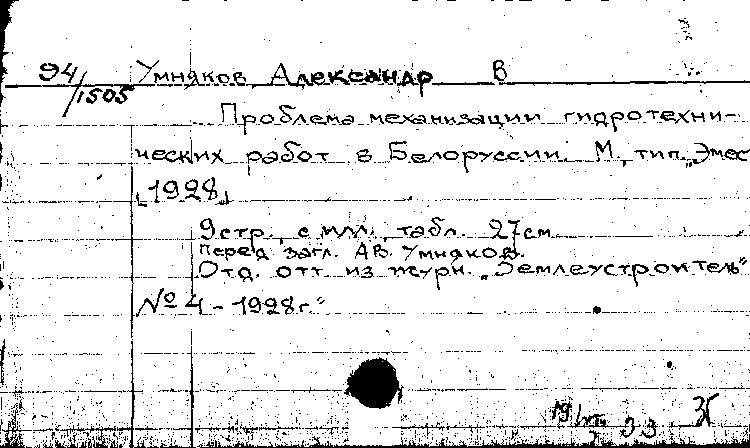 94/1505 Умняков Александр В
Проблема механизации гидротехни-
ческих работ в Белоруссии. М, тип. „Эмес
[1928]
9 стр., с илл., табл. 27 см
Перед загл. АВ. Умняков.
Отд. отт из журн. „Землеустроитель"
№ 4 - 1928 г."